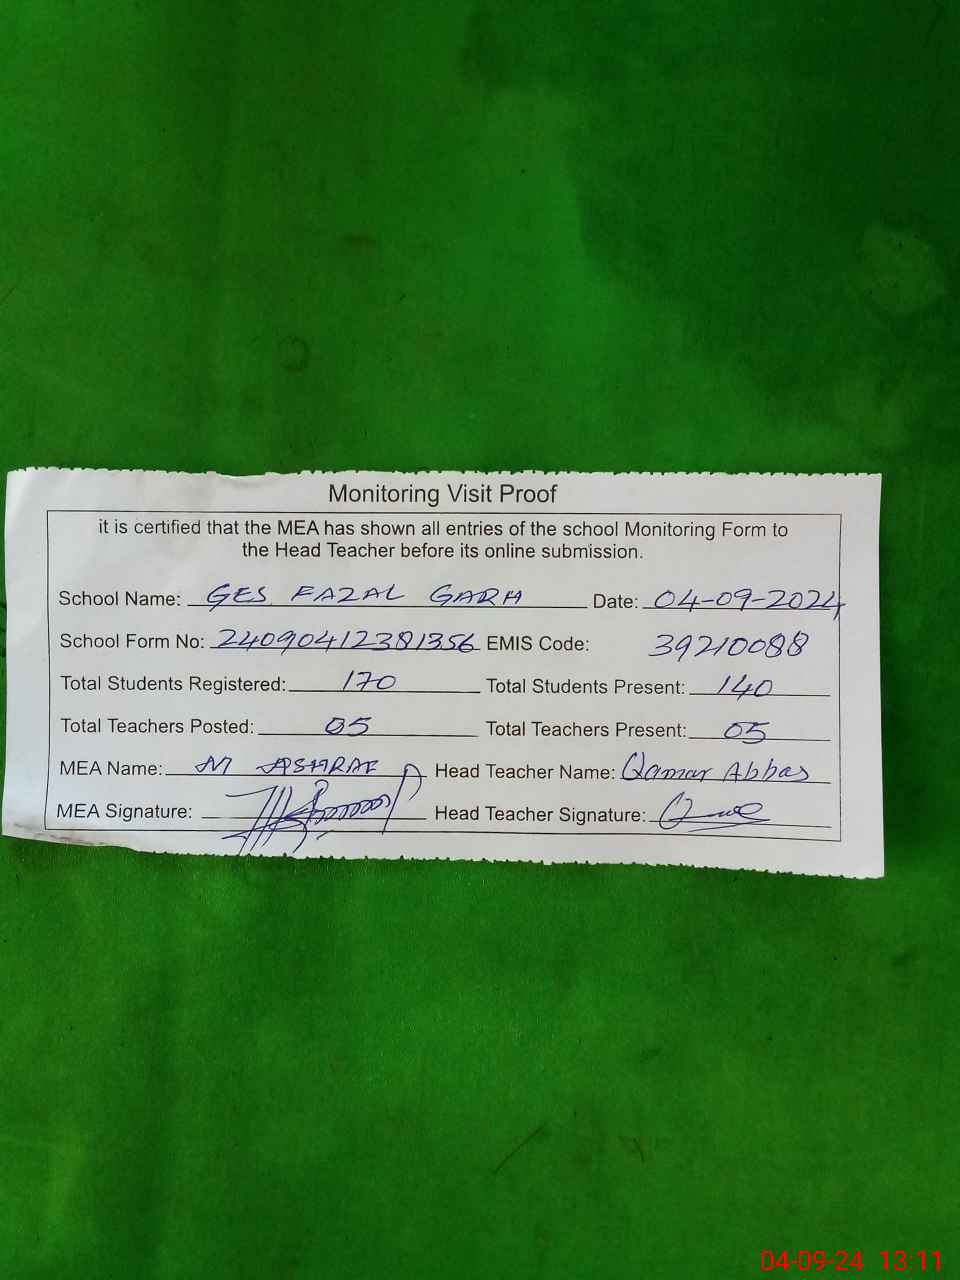 Monitoring Visit Proof
it is certified that the MEA has shown all entries of the school Monitoring Form to
the Head Teacher before its online submission.
School Name: GES FAZAL GARH Date: 04-09-2024
School Form No: 24090412381356 EMIS Code: 39210088
Total Students Registered: 170 Total Students Present: 140
Total Teachers Posted: 05 Total Teachers Present: 05
MEA Name: M ASHRAF Head Teacher Name: Qamar Abbas
MEA Signature: Head Teacher Signature:
04-09-24 13:11